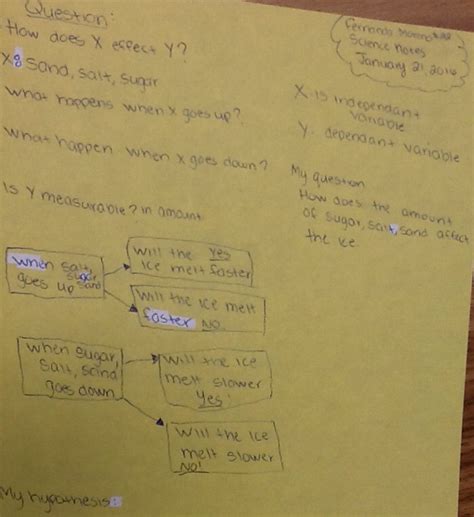 Question:
How does X effect Y?
X: Sand, salt, sugar
What happens when X goes up?
What happen when x goes down?
Is Y measurable? in amount
Fernando
Science notes
January 21,
X-is independant
variable
Y- dependant variable
My question
How does the amount
of sugar, salt, sand affect
the ice
when salt,
sugar
goes up sand
Will the Yes
Ice melt faster
Will the ice melt
faster NO.
when sugar,
salt, scind
goes down.
Will the Ice
melt slower
Yes!
Will the Ice
melt slower
NO!
My hypothesis: